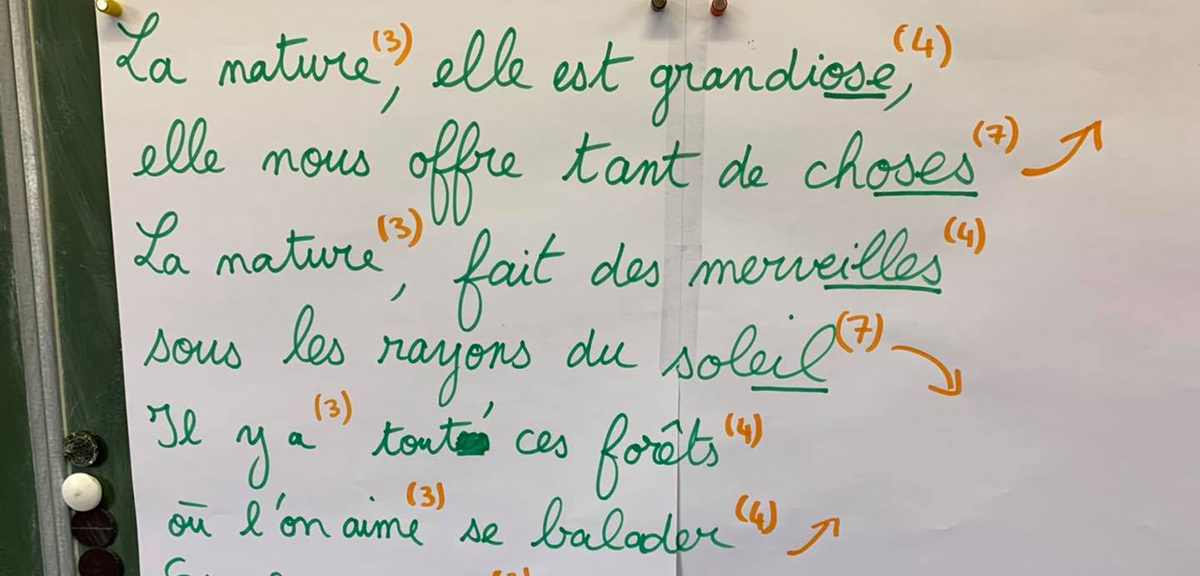 La nature (3), elle est grandiose, (4)
elle nous offre tant de choses (7)
La nature (3), fait des merveilles (4)
sous les rayons du soleil (7)
Il y a (3) tout' ces forêts (4)
où l'on aime (3) se balader (4)